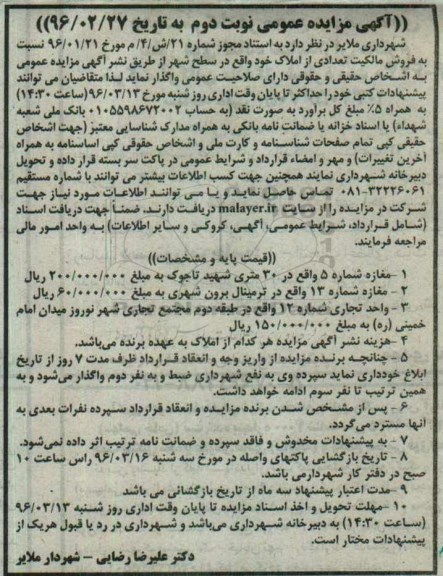 ((آگهی مزایده عمومی نوبت دوم به تاریخ ۹۶/۰۲/۲۷))
شهرداری ملایر در نظر دارد به استناد مجوز شماره ۲۱/ش/۴/م مورخ ۹۶/۰۱/۲۱ نسبت
به فروش مالکیت تعدادی از املاک خود واقع در سطح شهر از طریق نشر آگهی مزایده عمومی
به اشخاص حقیقی و حقوقی دارای صلاحیت عمومی واگذار نماید لذا متقاضیان می توانند
پیشنهادات کتبی خود را حداکثر تا پایان وقت اداری روز شنبه مورخ ۹۶/۰۳/۱۳ (ساعت ۱۴:۳۰)
به همراه ۵٪ مبلغ کل برآورد به صورت نقد (به حساب ۰۱۰۵۵۹۸۶۷۲۰۰۲ بانک ملی شعبه
شهداء) یا اسناد خزانه یا ضمانت نامه بانکی به همراه مدارک شناسایی معتبر (جهت اشخاص
حقیقی کپی تمام صفحات شناسنامه و کارت ملی و اشخاص حقوقی کپی اساسنامه به همراه
آخرین تغییرات) و مهر و امضاء قرارداد و شرایط عمومی در پاکت سر بسته قرار داده و تحویل
دبیرخانه شهرداری نمایند همچنین جهت کسب اطلاعات بیشتر می توانند با شماره مستقیم
۰۸۱-۳۲۲۲۶۰۶۱ تماس حاصل نمایند و یا می توانند اطلاعات مورد نیاز جهت
شرکت در مزایده را از سایت malayer.ir دریافت دارند. ضمناً جهت دریافت اسناد
(شامل قرارداد، شرایط عمومی، آگهی، کروکی و سایر اطلاعات) به واحد امور مالی
مراجعه فرمایند.
((قیمت پایه و مشخصات))
۱- مغازه شماره ۵ واقع در ۳۰ متری شهید تاجوک به مبلغ ۲۰۰/۰۰۰/۰۰۰ ریال
۲- مغازه شماره ۱۳ واقع در ترمینال برون شهری به مبلغ ۶۰/۰۰۰/۰۰۰ ریال
۳- واحد تجاری شماره ۱۲ واقع در طبقه دوم مجتمع تجاری شهر نوروز میدان امام
خمینی (ره) به مبلغ ۱۵۰/۰۰۰/۰۰۰ ریال
۴- هزینه نشر آگهی مزایده هر کدام از املاک به عهده برنده می‌باشد.
۵- چنانچه برنده مزایده از واریز وجه و انعقاد قرارداد ظرف مدت ۷ روز از تاریخ
ابلاغ خودداری نماید سپرده وی به نفع شهرداری ضبط و به نفر دوم واگذار می‌شود و به
همین ترتیب تا نفر سوم ادامه خواهد داشت.
۶- پس از مشخص شدن برنده مزایده و انعقاد قرارداد سپرده نفرات بعدی به
آنها مسترد می‌گردد.
۷- به پیشنهادات مخدوش و فاقد سپرده و ضمانت نامه ترتیب اثر داده نمی‌شود.
۸- تاریخ بازگشایی پاکتهای واصله در مورخ سه شنبه ۹۶/۰۳/۱۶ راس ساعت ۱۰
صبح در دفتر کار شهردار می باشد.
۹- مدت اعتبار پیشنهاد سه ماه از تاریخ بازگشائی می باشد
۱۰- مهلت تحویل و اخذ اسناد مزایده تا پایان وقت اداری روز شنبه ۹۶/۰۳/۱۳
(ساعت ۱۴:۳۰) به دبیرخانه شهرداری می‌باشد و شهرداری در رد یا قبول هریک از
پیشنهادات مختار است.
دکتر علیرضا رضایی - شهردار ملایر